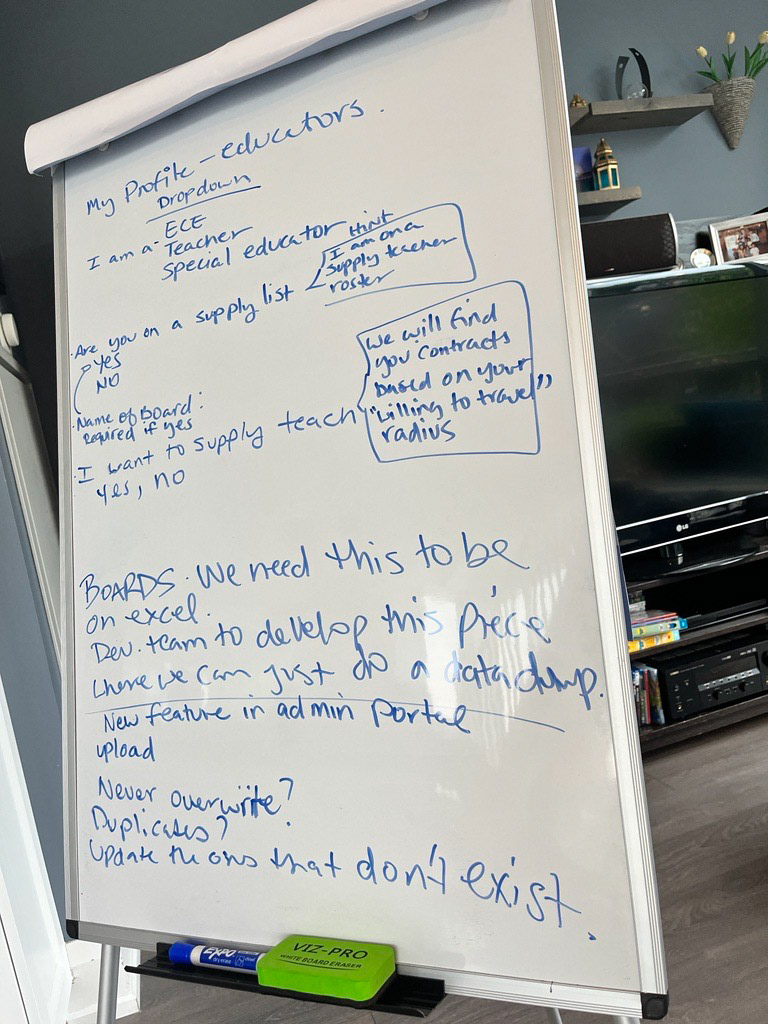 My Profile - educators.
Dropdown
ECE
I am a- Teacher
Special educator
Hint
I am on a
supply teacher
roster
· Are you on a supply list
Yes
NO
· Name of Board:
required if yes
· I want to supply teach
yes, no
We will find
you contracts
based on your
"willing to travel"
radius
BOARDS. We need this to be
on excel.
Dev. team to develop this piece
where we can just do a data dump.
New feature in admin portal
upload
Never overwrite?
Duplicates?
Update the ones that don't exist.
EXPO
VIZ-PRO
WHITE BOARD ERASER
LG